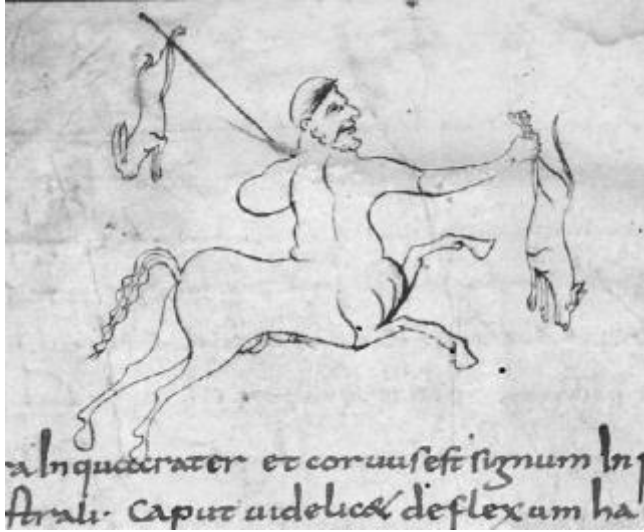 ra In qua crater et coruus est signum In p
strali. Caput uidelic& deflexum ha